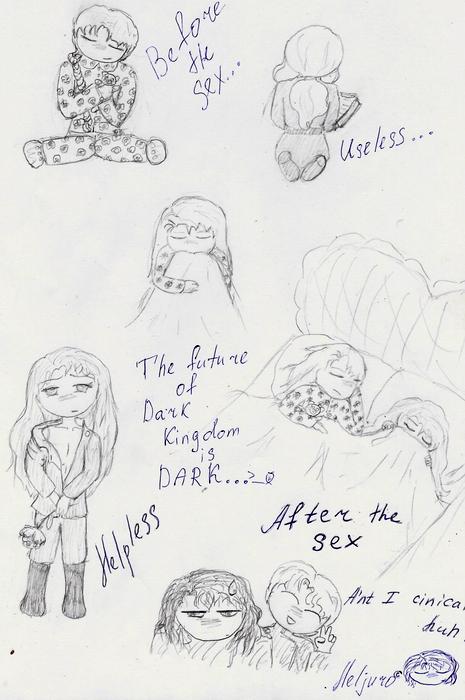 Before
the
sex...
Useless...
The future
of
Dark
Kingdom
is
DARK...>_0
Helpless
After the
sex
Ain't I cinical
huh
Neljuro